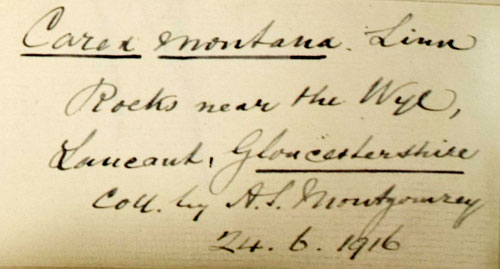 Carex montana. Linn
Rocks near the Wye,
Lancaut, Gloucestershire
Coll. by A.S. Montgomrey
24. 6. 1916